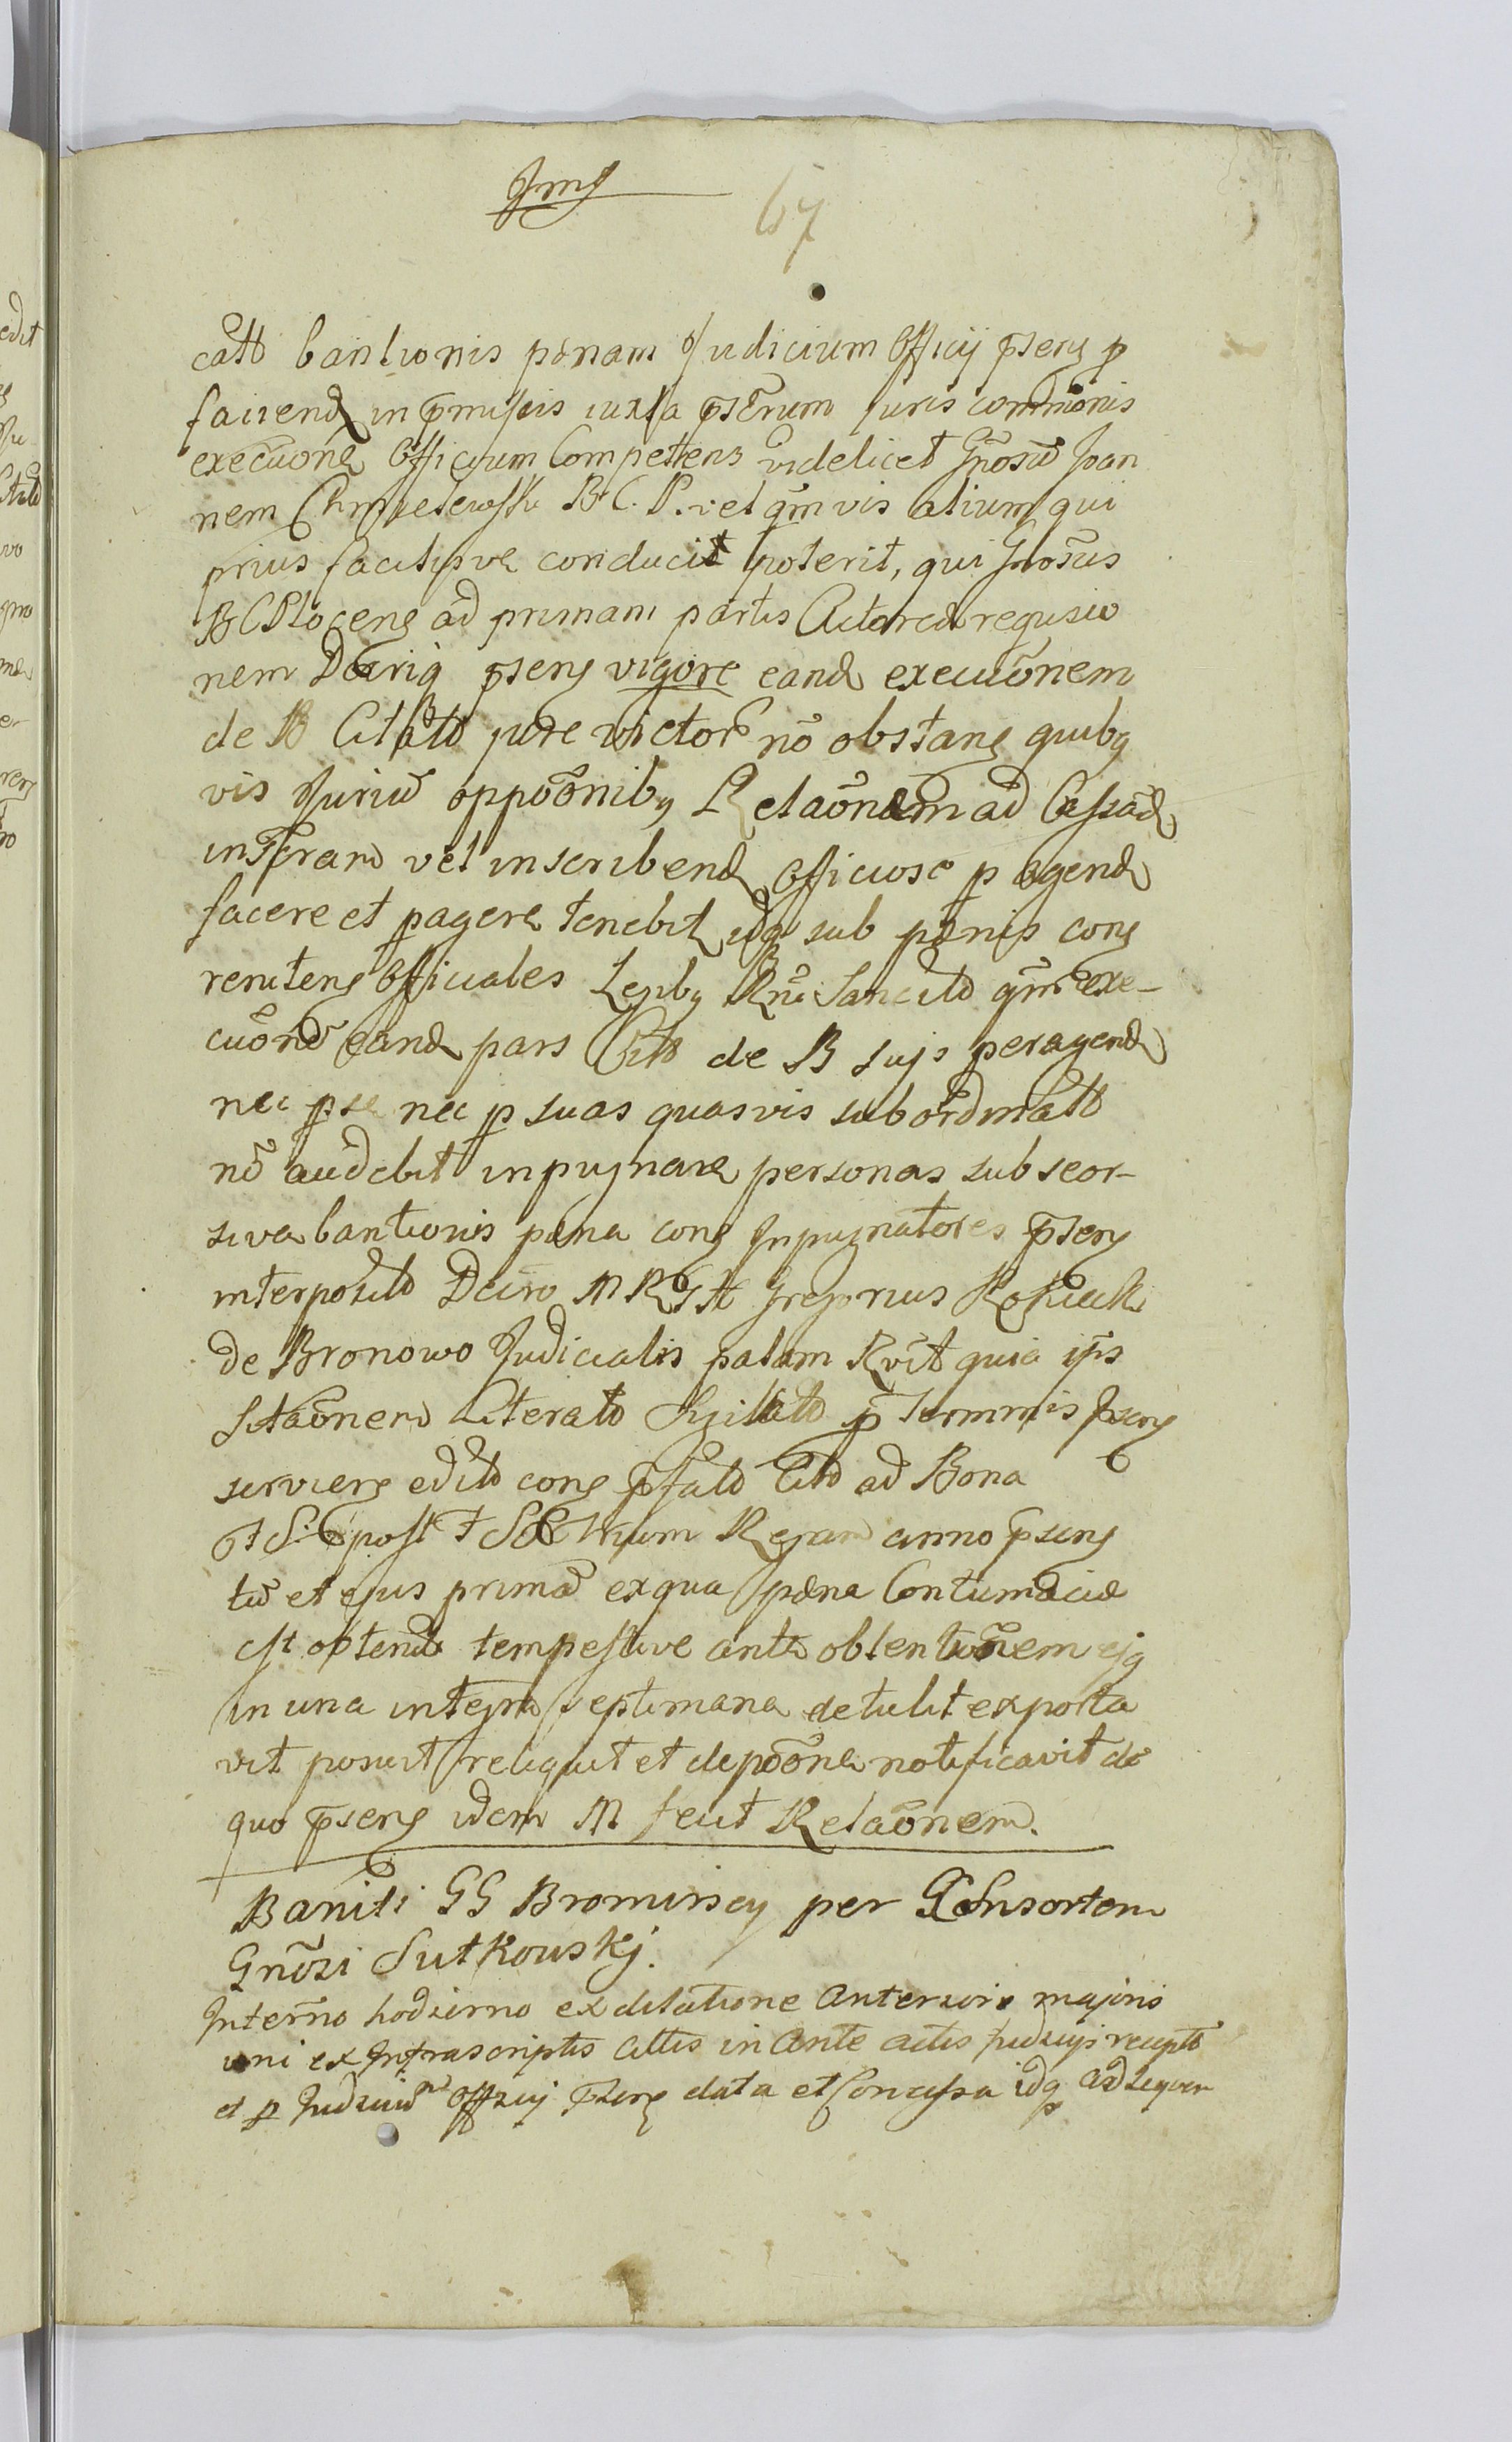 67
catt bantionis pœnam Judicium Officij p̄sens p
faciend in p̄missis iuxta Juris com̄mōnis
execūonē Officium Competens videlicet Gn̄osū Joan
nem Chmielewski B. C. P. vel qm̄vis alium qui
prius faciliusve conduci poterit, qui Gn̄osus
B C Plocens ad primam partis Actoreæ requisio
nem p̄sens vigore eand execuōnem
de B Citato jure victor nō obstang quibq
vis Juriū oppōonibq Relaōnem ad
vel inscribend officiose p agend
facere et p̄agere tenebit idq sub pœnis cong
renitens Officiales Legibq Sancito qm̄ exe-
cuōnē eand pars Citt de B sujs peragend
nec p se nec p suas quasvis subordinatt
nō audebit inpugnare personas sub seor-
siva bantionis pœna cong Inpugnatores p̄sens
interposito Decro M R Gregorius Rokicki
de Bronowo Judicialis palam Rv̄it quia ip̄s
Citaōnem Literato Sigillato p̄ Terminis p̄sens
serviens edito cong p̄fato Cito ad Bona
post Regam anno p̄sens
tū et ejus primā ex qua pœna Contumaciæ
est obtenta tempestive ante obtentiōnem ejq
in una integra septimana detulit exporta
vit posuit reliquit et depōōne notificavit de
quo p̄sens idem M fecit Relaōnem.
Baniti GG Brominscy per G Consortem
Gnōsi Sutkouskj.
In ter̄no hodierno ex dilatione Anteriore majoris
uni ex Infrascriptis Cittis in Ante actis Judicijs recepto
et p Judiciū Officij p̄sens data et Concessa idq ad sequen